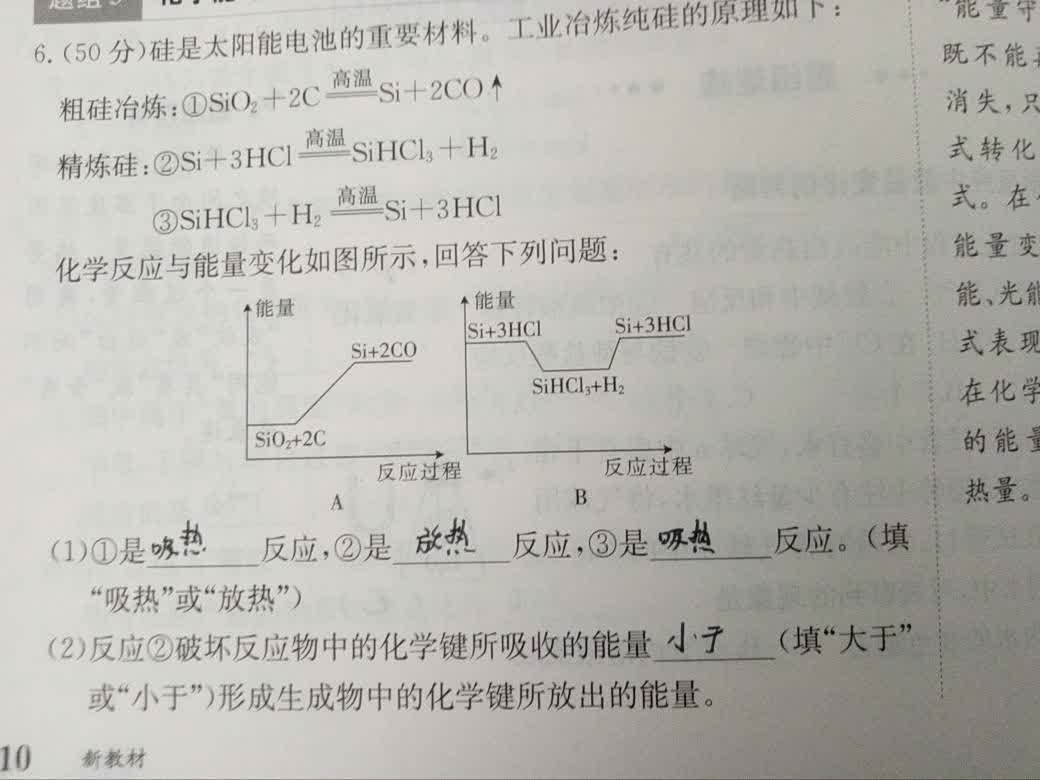 6.(50分)硅是太阳能电池的重要材料。工业冶炼纯硅的原理如下:
粗硅冶炼:①SiO₂+2C 高温 Si+2CO↑
精炼硅:②Si+3HCl 高温 SiHCl₃+H₂
③SiHCl₃+H₂ 高温 Si+3HCl
化学反应与能量变化如图所示,回答下列问题:
能量
Si+2CO
SiO₂+2C
反应过程
A
能量
Si+3HCl
Si+3HCl
SiHCl₃+H₂
反应过程
B
(1)①是吸热反应,②是放热反应,③是吸热反应。(填
“吸热”或“放热”)
(2)反应②破坏反应物中的化学键所吸收的能量小于(填“大于”
或“小于”)形成生成物中的化学键所放出的能量。
10 新教材
“能量守
既不能
消失,只
式转化
式。在
能量变
能、光能
式表现
在化学
的能量
热量。